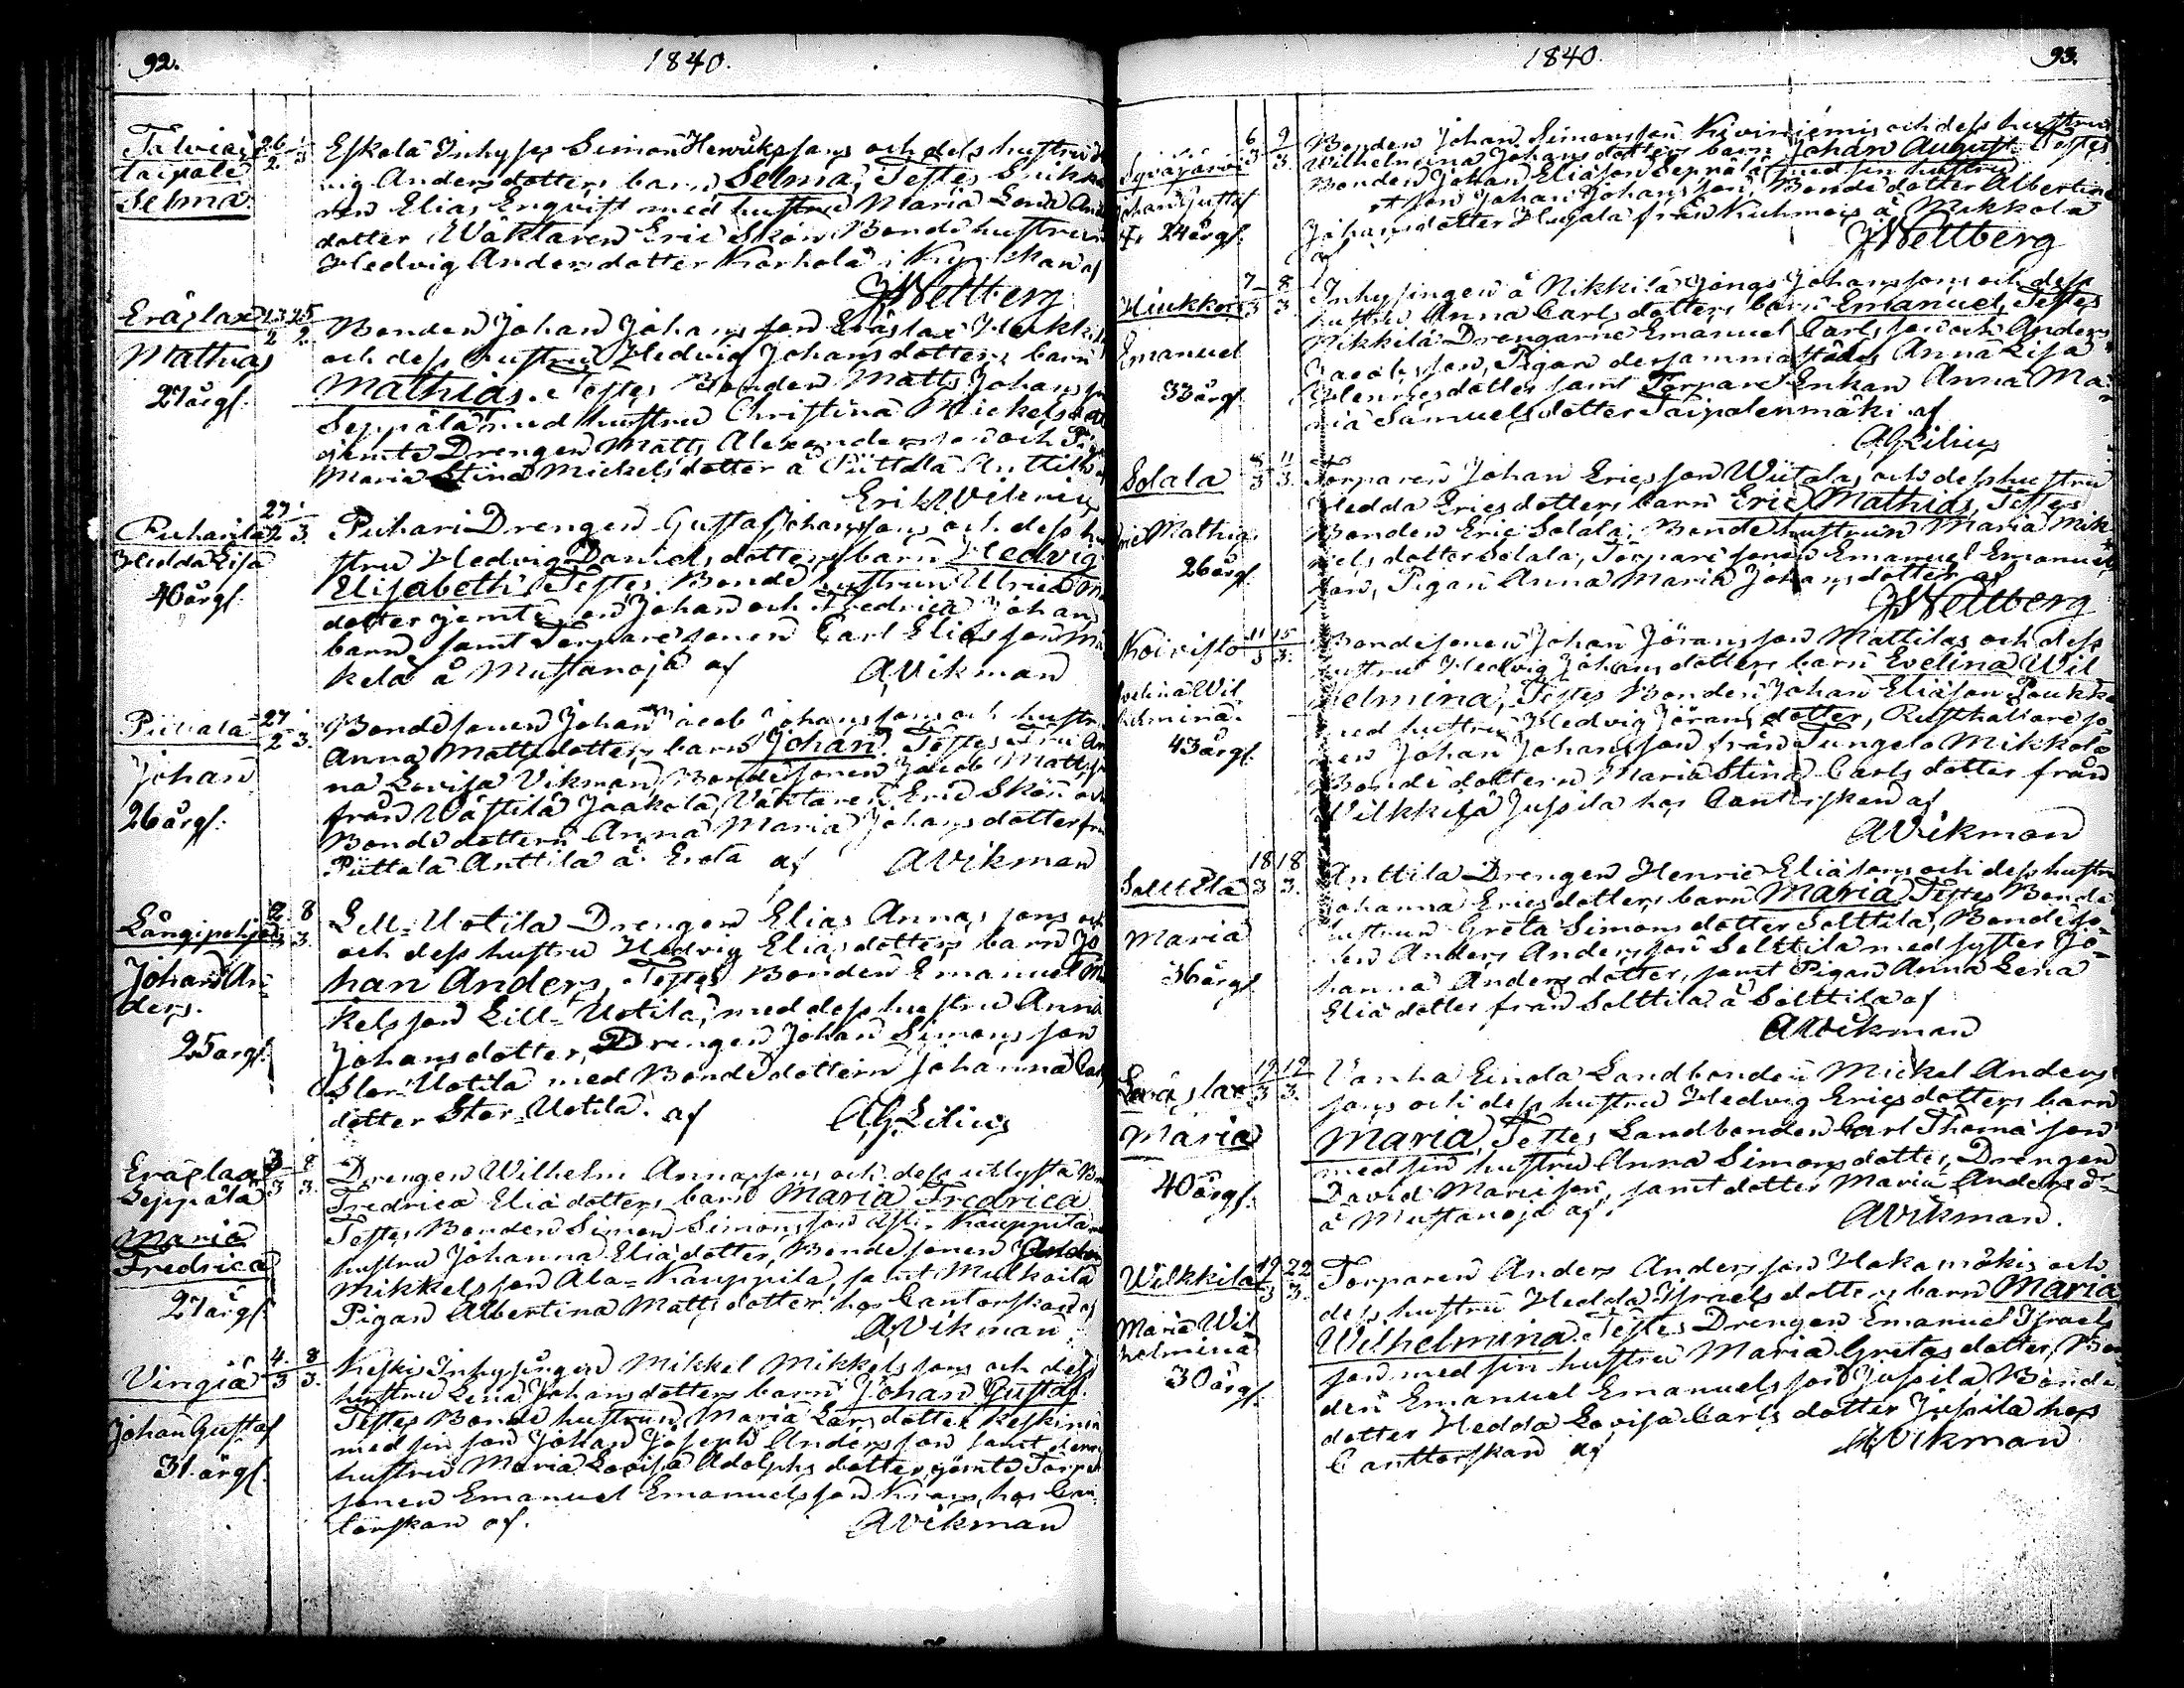 92.
1840.
Talvici
taipale
Selma
26/2 1/3
Eskola Inhyses Simon Henrikssons och dess hustru
vig Andersdotters barn Selma, Testes
ren Elias Enqvist med hustru Maria Lena
dotter Wäktaren Eric Skön Bonde hustrun
Hedvig Andersdotter Karhola i Kyrckan af
JWellberg
Eräslax
Mathias
27 årgl.
23/2 25/2
Bonden Johan Johansson Eräslax
och dess hustru Hedvig Johansdotters barn
Mathias. Testes Bonden Matts Johans
Seppälä med hustru Christina Mickels
jemte Drengen Matts Alexandersson och
Maria Stina Mickelsdotter å Püttala Anttila
Erik
Puharila
Hedda Lisa
40 årgl.
27/2 1/3
Puhari Drengen Gustaf Johanssons och dess hu
stru Hedvig Danielsdotters barn Hedvig
Elisabeth. Testes Bonde hustrun Ulrica
dotter jemte son Johan och Fredrica Johans
barn, samt Torpare sonen Carl Eliasson
kelä å Mustanoja af
AVikman
Johan
26 årgl.
27/2 1/3
Bondesonen Johan Jacob Johanssons och hustru
Anna Mattsdotters barn Johan. Testes Fru An
na Lovisa Vikman, Bondesonen Jacob Matts
från Wästilä Jaakola, Väktaren Eric Skön och
Bonde dottern Anna Maria Johansdotter
Püttala Anttila å Erola af
AVikman
Långipohja
Johan An-
ders.
25 argl.
2/3 8/3
Lill-Uotila Drengen Elias Annas sons och
och dess hustru Hedvig Eliasdotters barn Jo
han Anders, Testes Bonden Emanuel
kelsson Lill-Uotila, med dess hustru Anna
Johansdotter, Drengen Johan Simonsson
Stor-Uotila med Bondedottern Johanna
dotter Stor-Uotila. af
AGLilius
Eräslax
Seppälä
Maria
Fredrica
27 årgl.
3/3 8/3
Drengen Wilhelm Annassons och dess utlysta
Fredrica Eliädotters barn Maria Fredrica
Testes Bonden Simon Simonsson Kauppila
hustru Johanna Eliädotter, Bondesonen
Mikkelsson Ala-Kauppila, samt Mulkoila
Pigan Albertina Mattsdotter hos Cantorskan af
AVikman
Vingiä
Johan Gustaf
31 årgl.
4/3 8/3
Keskis Inhysingen Mikkel Mikkelssons och dess
hustru Lena Johansdotters barn Johan Gustaf.
Testes Bonde hustrun Maria Larsdotter
med sin son Johan Joseph Andersson samt
hustru Maria Lovisa Adolphsdotter, jemte Torpare
sonen Emanuel Emanuelsson hos Can-
torskan af.
AVikman
1840.
93.
Syväjärvi
Johan Gustaf
24 årgl.
6/3 9/3
Bonden Johan Simonsson Kiviniemis och dess hustru
Wilhelmina Johansdotters barn Johan August. Testes
Bonden Johan Eliäson Seppälä med sin hustru
Johan Johansson, Bonde dotter Albertina
Johansdotter Hugala från Kuhmois å Mikkola
af
JWellberg
Hiukkois
Emanuel
33 årgl.
7/3 8/3
Inhysingen å Nikkilä Johanssons och dess
hustru Anna Carlsdotters barn Emanuel, Testes
Nikkilä Drengarne Emanuel Carlsson och Anders
Jacobsson, Pigan dersammastädes Anna Lisa
Henricsdotter samt Torpare Enkan Anna Ma-
ria Samuelsdotter Taipalenmäki af
AGLilius
Solala
Mathias
26 årgl.
8/3 11/3
Torparen Johan Ericsson Wiitalas och dess hustru
Hedda Ericsdotters barn Eric Mathias, Testes
Bonden Eric Solala, Bonde hustrun Maria Mik
kelsdotter Solala, Torpare sonen Emanuel Emanuels
son, Pigan Anna Maria Johansdotter af
JWellberg
Koivisto
Evelina Wil
helmina.
43 årgl.
11/3 15/3
Bondesonen Johan Jöransson Mattilas och dess
hustru Hedvig Johansdotters barn Evelina Wil
helmina, Testes Bonden Johan Eliäson Poukka
med hustru Hedvig Jöransdotter, Rusthållare so
nen Johan Johansson från Tungelo Mikkola
Bonde dottern Maria Stina Carlsdotter från
Wilkkilä Jussila hos Cantorskan af
AVikman
Solttila
Maria
36 årgl.
18/3 18/3
Anttila Drengen Henric Eliäsons och dess hustru
Johanna Ericsdotters barn Maria Testes Bonde
hustrun Greta Simonsdotter Solttila, Bondeso-
nen Anders Andersson Solttila med syster Jo-
hanna Andersdotter, samt Pigan Anna Lena
Eliädotter från Solttila å Solttila af
AVikman
Eräslax
Maria
40 årgl.
19/3 19/3
Vanha Einola Landbonden Mickel Anders
sons och dess hustru Hedvig Ericsdotters barn
Maria, Testes Landbonden Carl Thomasson
med sin hustru Anna Simonsdotter, Drengen
David Mariison, samt dotter Maria Andersd-
å Mustanoja af
AVikman.
Wilkkilä
Maria Wil
helmina
30 årgl.
19/3 22/3
Torparen Anders Andersson Hakamäkis och
dess hustru Hedda Israelsdotters barn Maria
Wilhelmina. Testes Drengen Emanuel Israels
son med sin hustru Maria Gretasdotter, Bon
den Emanuel Emanuelsson Jussila, Bonde
dotter Hedda Lovisa Carlsdotter Jussila hos
Canttorskan af
AVikman